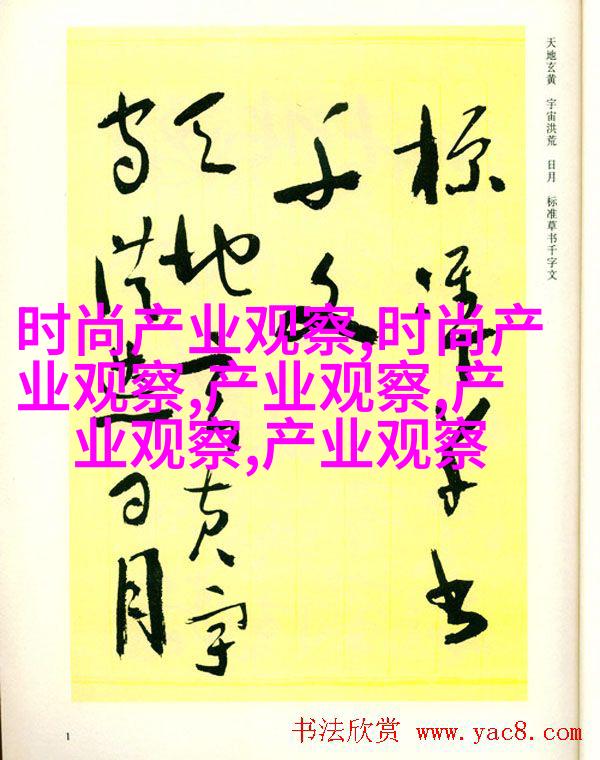 天地玄黄 宇宙洪荒 日月 标准草书千字文
標準草書
千文
天地玄黄宇
宙洪荒日月
时尚产业观察,时尚产
业观察,产业观察,产
业观察,产业观察
1
书法欣赏 www.yac8.com